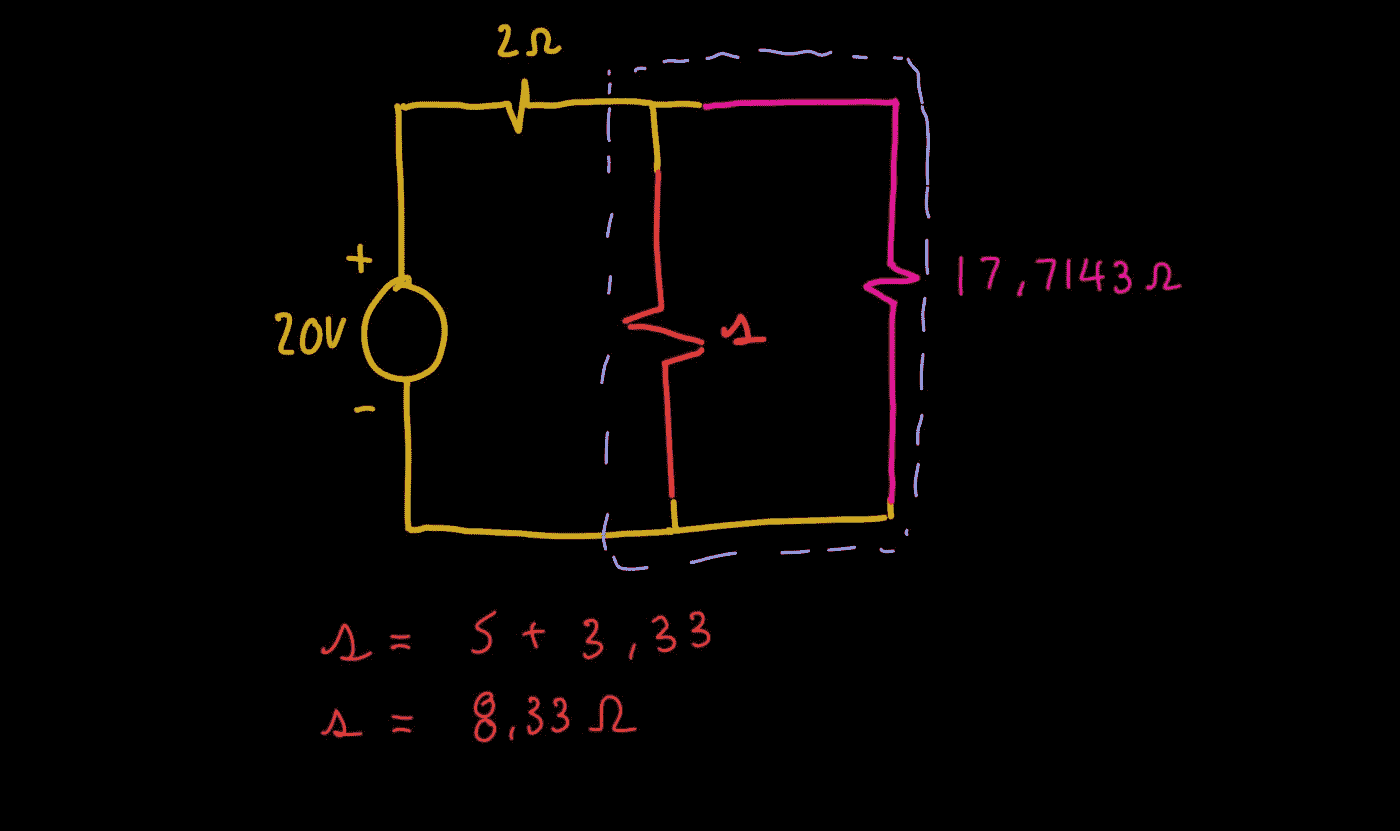 2Ω
+
20V
-
s
17,7143 Ω
s = 5 + 3,33
s = 8,33 Ω